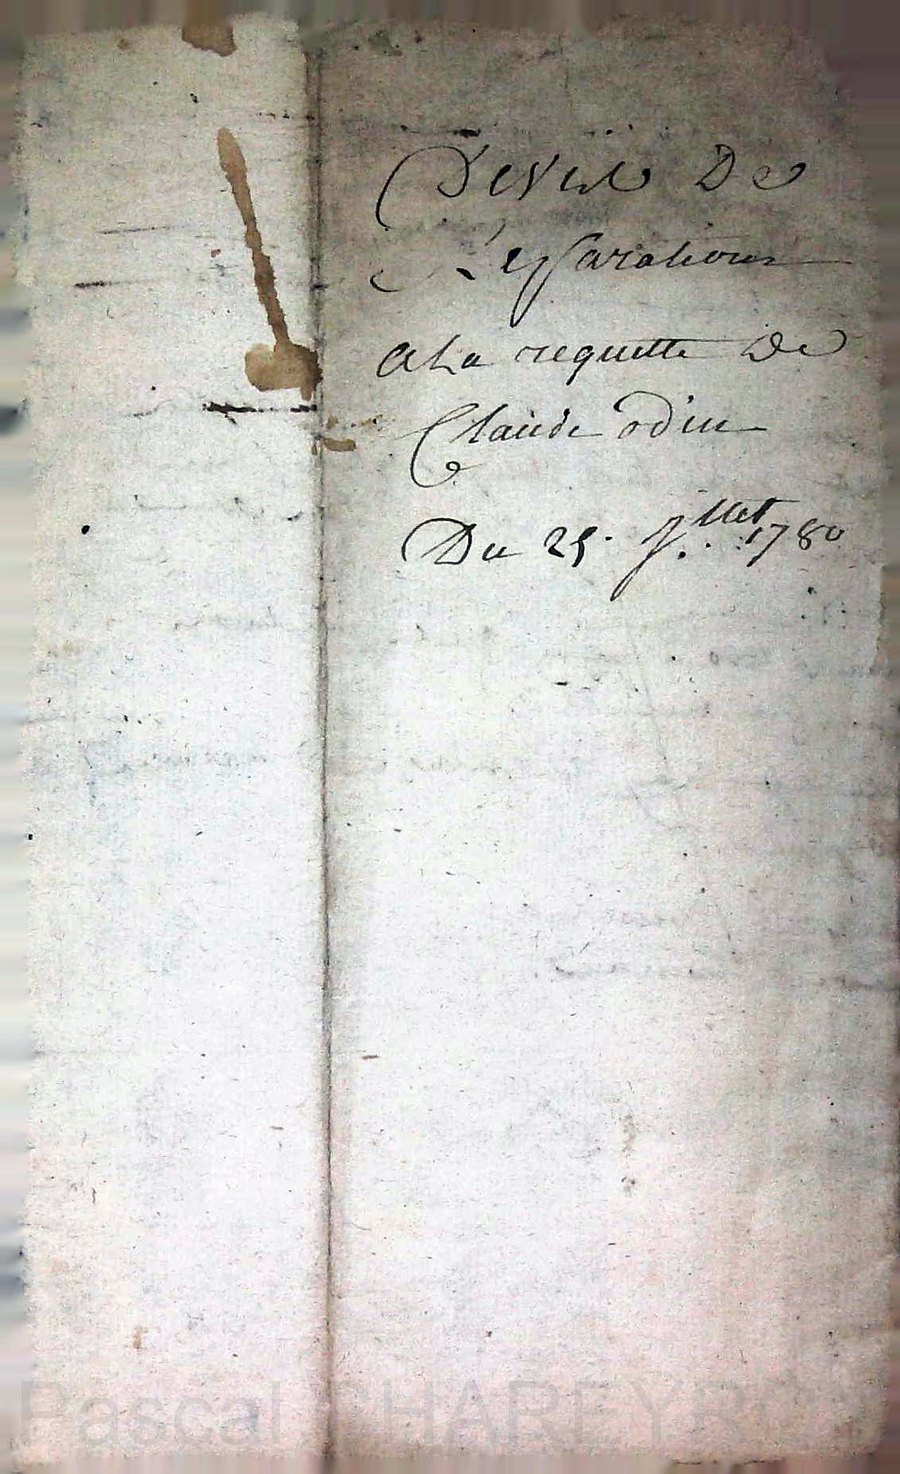 Devis De
Reparations
A La requette de
Claude odin
Du 25. Jllet 1780
Pascal CHAREYR